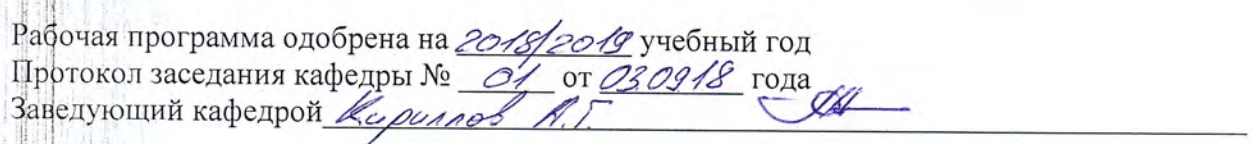 Рабочая программа одобрена на 2018/2019 учебный год
Протокол заседания кафедры № 01 от 03.09.18 года
Заведующий кафедрой Кириллов А.Г.